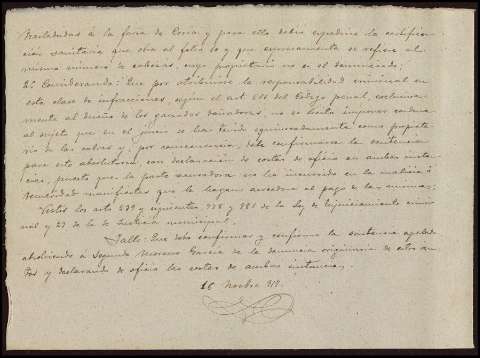 trasladadas á la feria de Coria y para ello debió expedirse la certifica-
ción sanitaria que obra al folio 10 y que expresamente se refiere al
mismo número de cabezas, cuyo propietario no es el denunciado;
2º Considerando: Que por atribuirse la responsabilidad criminal en
esta clase de infracciones, según el art. 611 del Código penal, exclusiva-
mente al dueño de los ganados dañadores, no es lícito imponer condena
al sujeto que en el juicio se ha tenido equivocadamente como propieta-
rio de las cabras y, por consecuencia, debe confirmarse la sentencia
para este absolutoria, con declaración de costas de oficio en ambas instan-
cias, puesto que la parte acusadora no ha incurrido en la malicia ó
temeridad manifiestas que la hagan acreedora al pago de las mismas;
Vistos los arts 239 y siguientes, 978 y 981 de la ley de Enjuiciamiento crimi-
nal y 29 de la de Justicia municipal;
Fallo: Que debo confirmar y confirmo la sentencia apelada
absolviendo á Segundo Moreno García de la denuncia originaria de estos au-
tos y declarando de oficio las costas de ambas instancias.
16 Novbre 912.